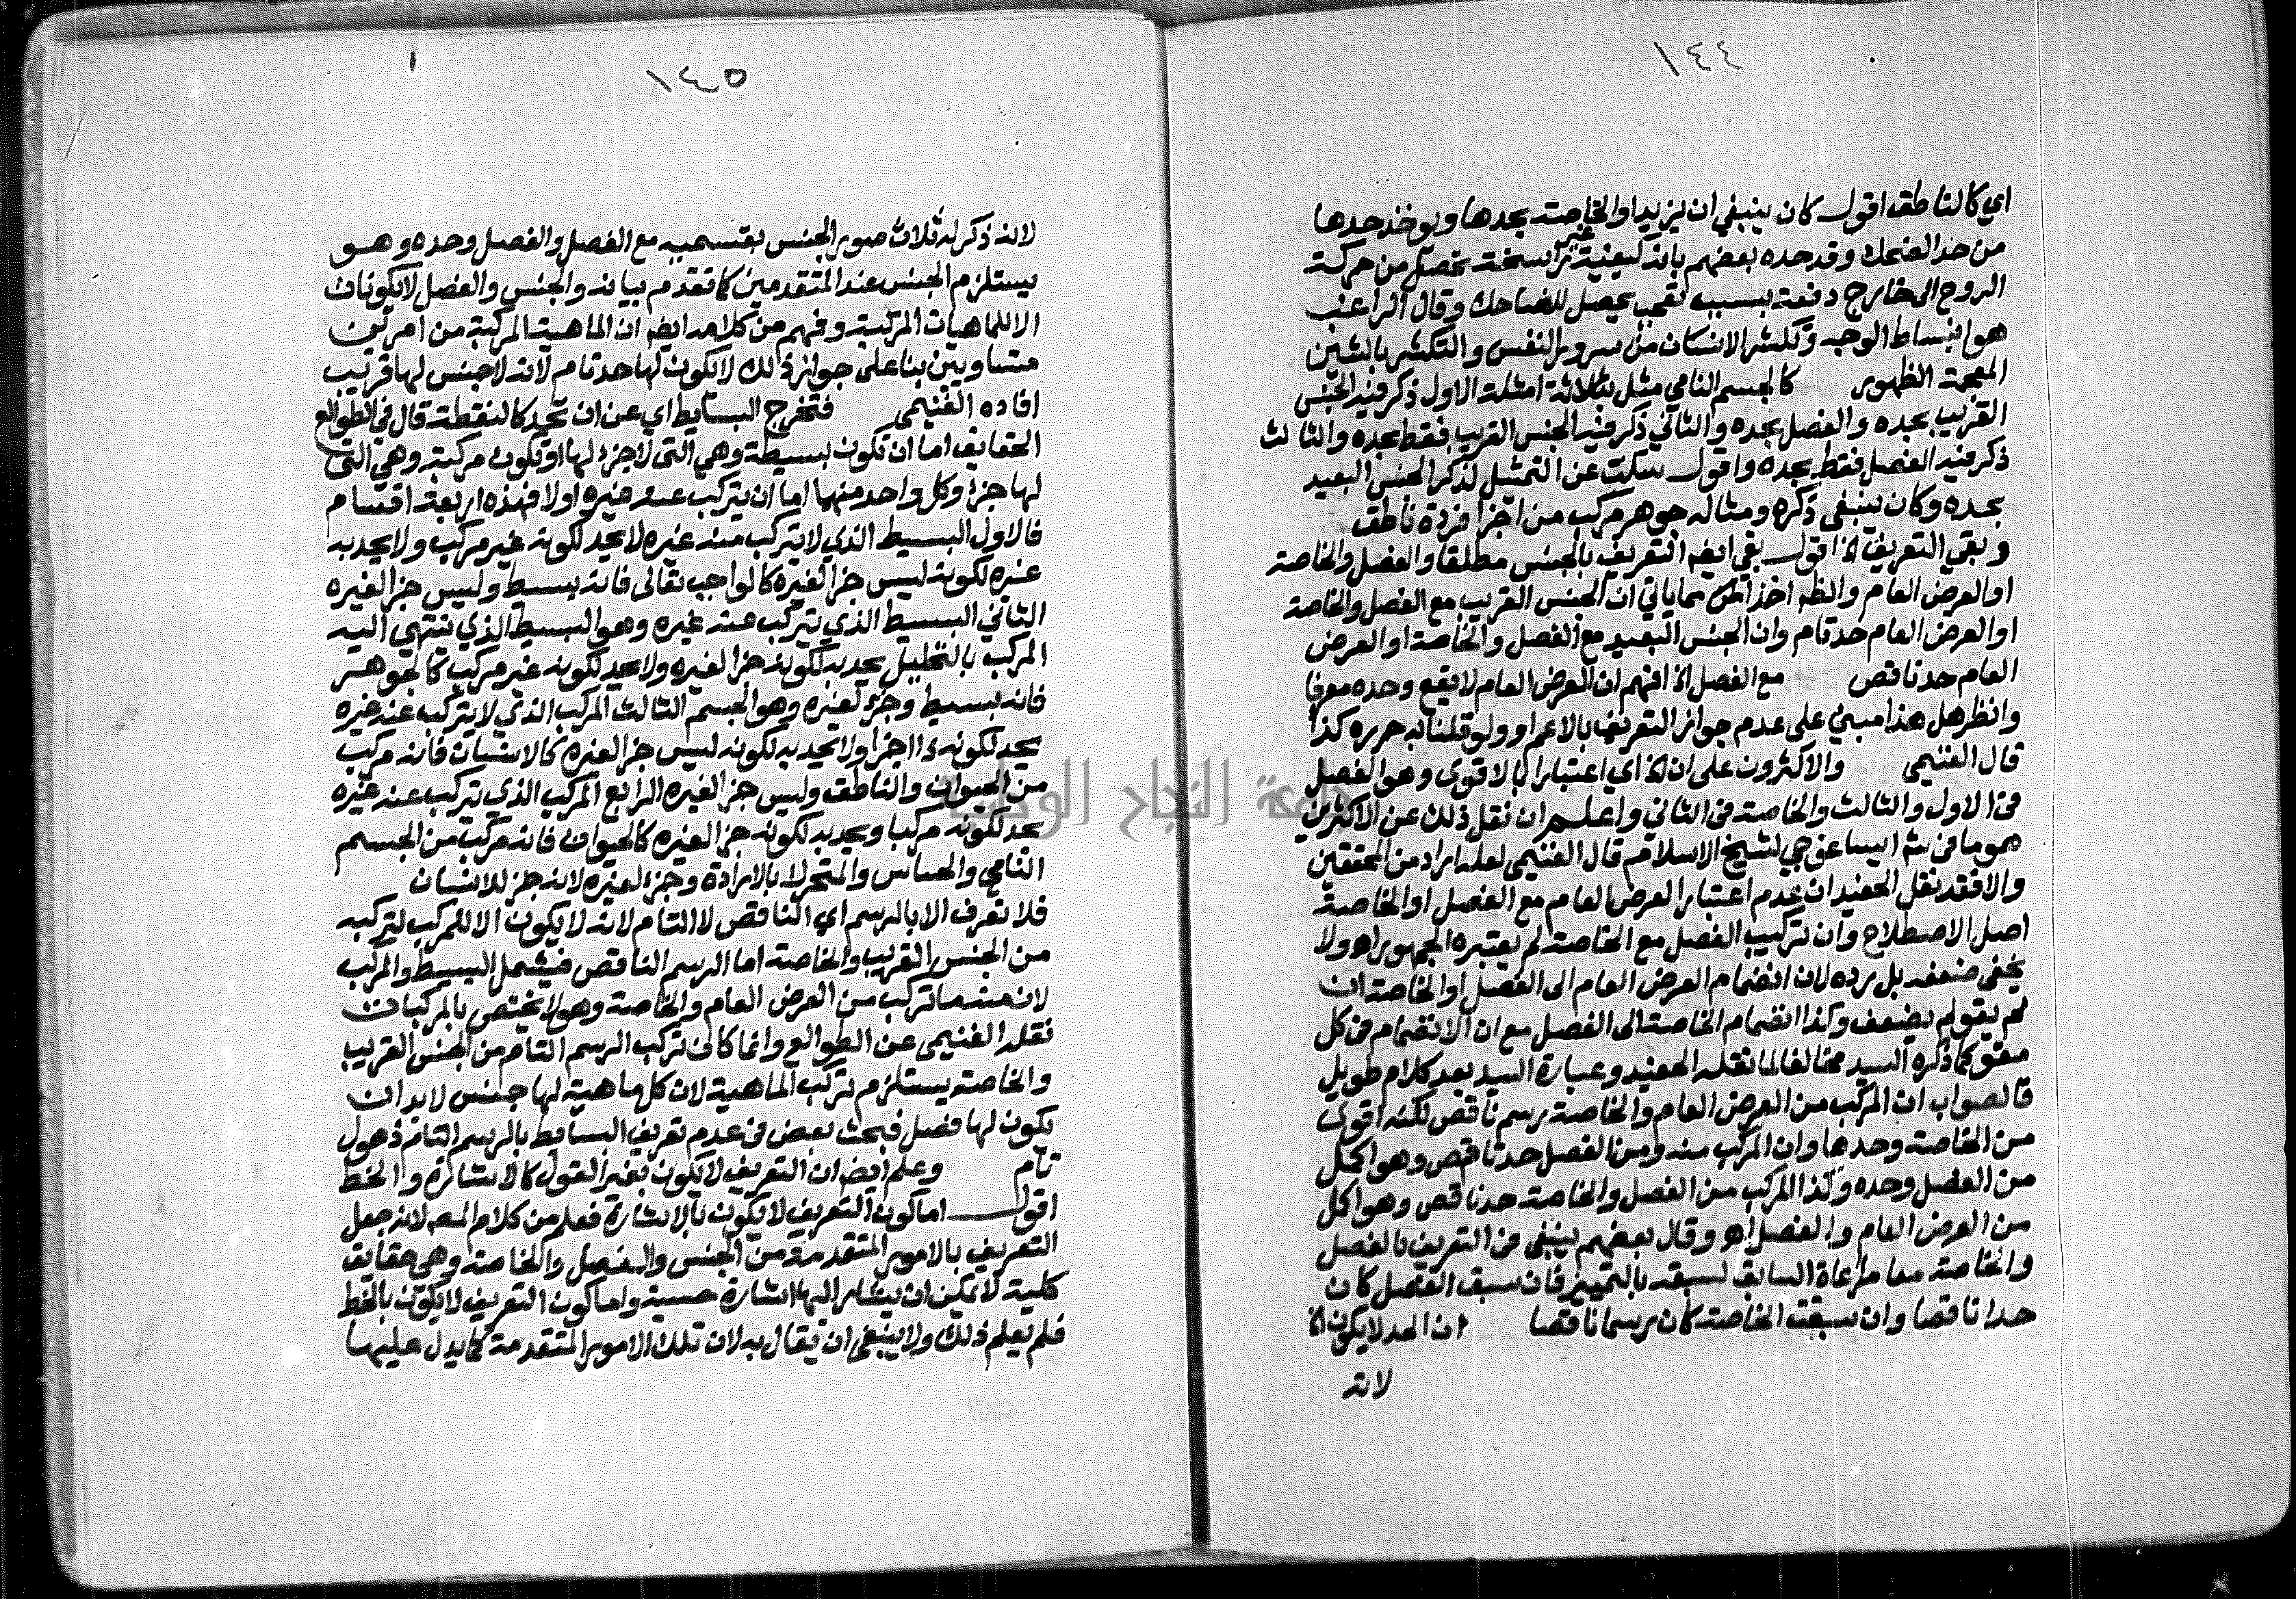 ١٤٤
اي كالناطق اقول كان ينبغي ان يزيد او الخاصة بحدها ويوخذ حدها
من حد الضحك وقد حده بعضهم بانه كيفية غير راسخة تحصل من حركة
الروح الى خارج دفعة بسبب تعجب يحصل للضاحك وقال الراغب
هو انبساط الوجه وتكشر الاسنان من سرور النفس والتكشر بالشين
المعجمة الظهور كالجسم النامي مثل بثلاثة امثلة الاول ذكر فيه الجنس
القريب بحده والفصل بحده والثاني ذكر فيه الجنس القريب فقط بحده والثالث
ذكر فيه الفصل فقط بحده واقول سكت عن التمثيل لذكر الجنس البعيد
بحده وكان ينبغي ذكره ومثاله جوهر مركب من اجزا فردة ناطق
وبقي التعريف الخ اقول بقي ايضا التعريف بالجنس مطلقا والفصل والخاصة
او العرض العام والظ اخذا مما ياتي ان الجنس القريب مع الفصل والخاصة
او العرض العام حد تام وان الجنس البعيد مع الفصل والخاصة او العرض
العام حد ناقص مع الفصل الخ افهم ان العرض العام لا يقع وحده معرفا
وانظر هل هذا مبني على عدم جواز التعريف بالاعم او ولو قلنا به حرره كذا
قال الغنيمي والاكثرون على ان الخ اي اعتبارا بالاقوى وهو الفصل
في الاول والثالث والخاصة في الثاني واعلم ان نقل ذلك عن الاكثرين
هو ما في شرح ايساغوجي لشيخ الاسلام قال الغنيمي لعله اراد من المحققين
والا فقد نقل الحفيد ان عدم اعتبار العرض العام مع الفصل او الخاصة
اصل الاصطلاح وان تركيب الفصل مع الخاصة لم يعتبره الجمهور اه ولا
يخفى ضعفه بل رده لان انضمام العرض العام الى الفصل او الخاصة ان
لم يقو لم يضعف وكذا انضمام الخاصة الى الفصل مع ان الانضمام في كل
مقو كما ذكره السيد مخالفا لما نقله الحفيد وعبارة السيد بعد كلام طويل
فالصواب ان المركب من العرض العام والخاصة رسم ناقص لكنه اقوى
من الخاصة وحدها وان المركب منه ومن الفصل حد ناقص وهو اكمل
من الفصل وحده وكذا المركب من الفصل والخاصة حد ناقص وهو اكمل
من العرض العام والفصل اه وقال بعضهم ينبغي في التعريف بالفصل
والخاصة معا مراعاة السابق لسبقه بالتمييز فان سبق الفصل كان
حدا ناقصا وان سبقت الخاصة كان رسما ناقصا ان الحد لا يكون الخ
لانه
١٤٥
لانه ذكر له ثلاث صور الجنس بقسميه مع الفصل والفصل وحده وهو
يستلزم الجنس عند المتقدمين كما تقدم بيانه والجنس والفصل لا يكونان
الا للماهيات المركبة وفهم من كلامه ايضا ان الماهية المركبة من امرين
متساويين بنا على جواز ذلك لا يكون لها حد تام لانه لا جنس لها قريب
افاده الغنيمي فتخرج البسايط اي عن ان تحد كالنقطة قال في الطوالع
الحقايق اما ان تكون بسيطة وهي التي لا جزء لها او تكون مركبة وهي التي
لها جزء وكل واحد منها اما ان يتركب عنه غيره او لا فهذه اربعة اقسام
فالاول البسيط الذي لا يتركب منه غيره لا يحد لكونه غير مركب ولا يحد به
غيره لكونه ليس جزا لغيره كالواجب تعالى فانه بسيط وليس جزا لغيره
الثاني البسيط الذي يتركب منه غيره وهو البسيط الذي ينتهي اليه
المركب بالتحليل يحد به لكونه جزا لغيره ولا يحد لكونه غير مركب كالجوهر
فانه بسيط وجزء لغيره وهو الجسم الثالث المركب الذي لا يتركب عنه غيره
يحد لكونه ذا اجزا ولا يحد به لكونه ليس جزا لغيره كالانسان فانه مركب
من الحيوان والناطق وليس جزا لغيره الرابع المركب الذي يتركب عنه غيره
يحد لكونه مركبا ويحد به لكونه جزا لغيره كالحيوان فانه مركب من الجسم
النامي والحساس والمتحرك بالارادة وجزء لغيره لانه جزء للانسان
فلا تعرف الا بالرسم اي الناقص لا التام لانه لا يكون الا للمركب لتركبه
من الجنس القريب والخاصة اما الرسم الناقص فيشمل البسيط والمركب
لان منه ما تركب من العرض العام والخاصة وهو لا يختص بالمركبات
نقله الغنيمي عن الطوالع وانما كان تركب الرسم التام من الجنس القريب
والخاصة يستلزم تركب الماهية لان كل ماهية لها جنس لا بد ان
يكون لها فصل فبحث بعض في عدم تعريف البسايط بالرسم التام ذهول
تام وعلم ايضا ان التعريف لا يكون بغير القول كالاشارة والخط
اقول اما كون التعريف لا يكون بالاشارة فعلم من كلام المص لانه جعل
التعريف بالامور المتقدمة من الجنس والفصل والخاصة وهي حقايق
كلية لا يمكن ان يشار اليها اشارة حسية واما كون التعريف لا يكون بالخط
فلم يعلم ذلك ولا ينبغي ان يقال به لان تلك الامور المتقدمة كما يدل عليها
جامعة النجاح الوطنية